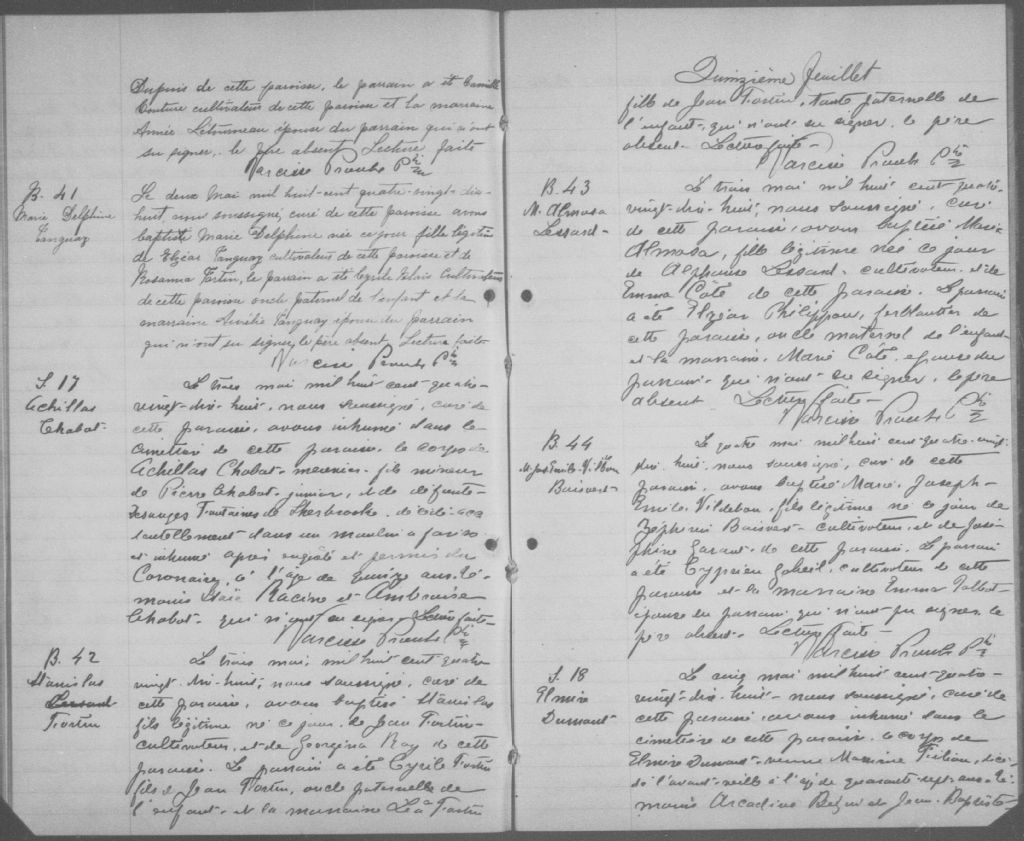 Dupuis de cette paroisse, le parrain a été Camille
Couture cultivateur de cette paroisse et la marraine
Annie Létourneau épouse du parrain qui n'ont
su signer, le père absent. Lecture faite
Narcisse Proulx Ptre
B. 41
Marie Delphine
Tanguay
Le deux Mai mil huit-cent quatre-vingt-dix-
huit, nous soussigné, curé de cette paroisse avons
baptisé Marie Delphine née ce jour fille légitime
de Elzéar Tanguay cultivateur de cette paroisse et de
Rosanna Fortin, le parrain a été cultivateur
de cette paroisse oncle paternel de l'enfant et la
marraine Amélie Tanguay épouse du parrain
qui n'ont su signer, le père absent, Lecture faite
Narcisse Proulx Ptre
S. 17
Achillas
Chabot.
Le trois mai mil huit cent quatre-
vingt-dix-huit, nous soussigné, curé de
cette paroisse, avons inhumé dans le
cimetière de cette paroisse, le corps de
Achillas Chabot, meunier, fils mineur
de Pierre Chabot, junior, et de défunte
Desanges Fontaine de Sherbrooke, décédé acci
dentellement dans un moulin à farine
et inhumé après enquête et permis du
Coronaire, à l'âge de quinze ans. Té-
moins Racine et Ambroise
Chabot, qui n'ont su signer. Lecture faite-
Narcisse Proulx Ptre
B. 42
Stanislas
Fortin
Le trois mai, mil huit cent quatre
vingt-dix-huit, nous soussigné, curé de
cette paroisse, avons baptisé Stanislas
fils légitime né ce jour de Jean Fortin-
cultivateur, et de Georgina Roy de cette
paroisse. Le parrain a été Cyrile Fortin
fils de Jean Fortin, oncle paternelle de
l'enfant, et la marraine Léa Fortin
Quinzième feuillet
fille de Jean Fortin, tante paternelle de
l'enfant, qui n'ont su signer, le père
absent- Lecture faite-
Narcisse Proulx Ptre
B. 43
M. Almosa
Lessard-
Le trois mai mil huit cent quatre-
vingt-dix-huit, nous soussigné, curé
de cette paroisse, avons baptisé Marie
Almosa, fille légitime née ce jour
de Alphonse Lessard, cultivateur et de
Emma Côté de cette paroisse. Le parrain
a été Elzéar Philippon, ferblantier de
cette paroisse, oncle maternel de l'enfant
et la marraine, Marie Côté, épouse du
parrain, qui n'ont su signer, le père
absent Lecture faite-
Narcisse Proulx Ptre
B. 44
Boisvert-
Le quatre mai mil huit cent quatre-vingt
dix-huit, nous soussigné, curé de cette
paroisse, avons baptisé Marie, Joseph-
Emile, Vildebon, fils légitime né ce jour de
Zéphirin Boisvert- cultivateur, et de José-
phine Garant, de cette paroisse. Le parrain
a été Cyprien Goheil, cultivateur de cette
paroisse et la marraine Emma Talbot
épouse du parrain qui n'ont pu signer, le
père absent. Lecture faite-
Narcisse Proulx Ptre
S. 18
Elmire
Dumont-
Le cinq mai mil huit cent quatre-
vingt-dix-huit- nous soussigné, curé de
cette paroisse, avons inhumé dans le
cimetière de cette paroisse, le corps de
Elmire Dumont- décé-
dé l'avant-veille à l'âge de quarante-sept-ans. Té-
moins Arcadius et Jean-Baptiste-